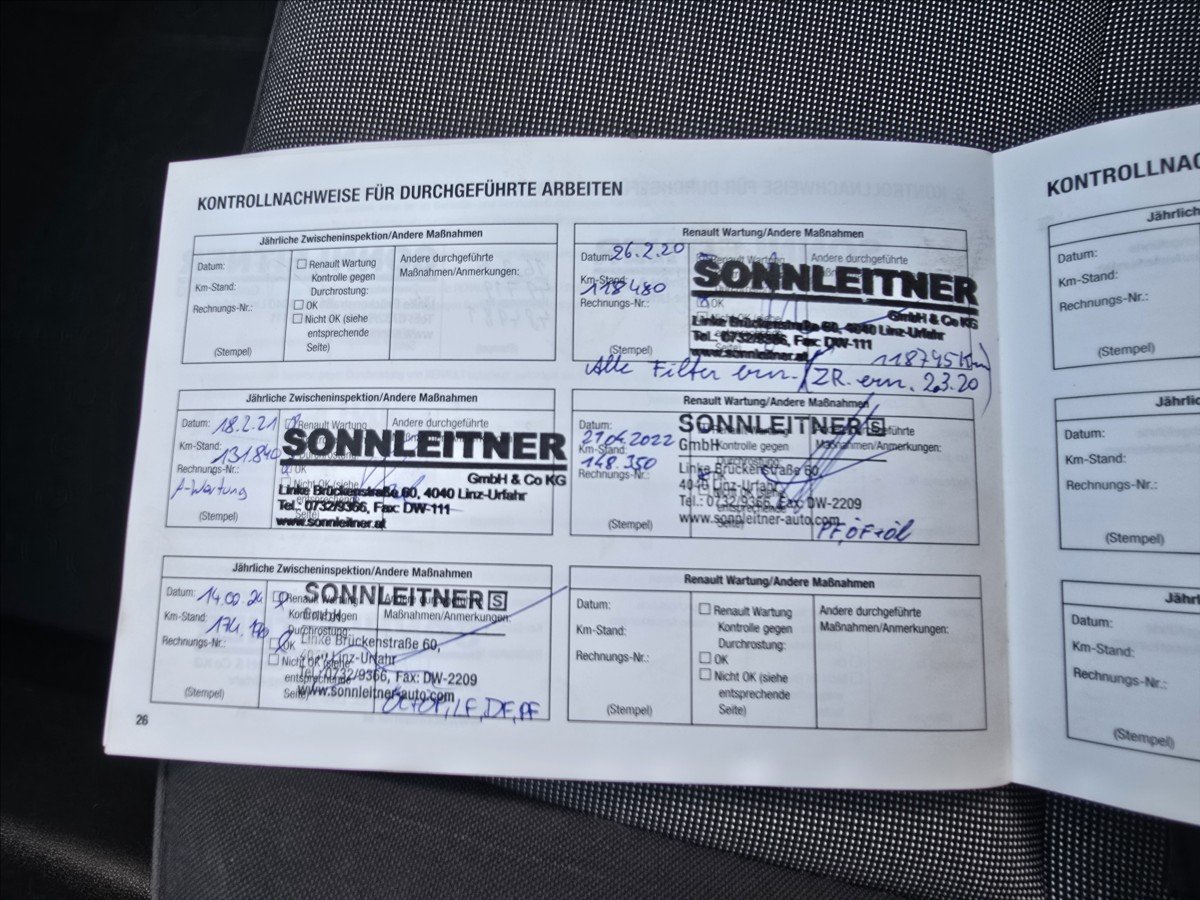 KONTROLLNACHWEISE FÜR DURCHGEFÜHRTE ARBEITEN
Jährliche Zwischeninspektion/Andere Maßnahmen
Datum:
Km-Stand:
Rechnungs-Nr.:
(Stempel)
Renault Wartung
Kontrolle gegen
Durchrostung:
OK
Nicht OK (siehe
entsprechende
Seite)
Andere durchgeführte
Maßnahmen/Anmerkungen:
Renault Wartung/Andere Maßnahmen
Datum: 26.2.20
Km-Stand: 118480
Rechnungs-Nr.:
(Stempel)
Renault Wartung
Andere durchgeführte
OK
SONNLEITNER
GmbH & Co KG
Linke Brückenstraße 60, 4040 Linz-Urfahr
Tel.: 0732/9366, Fax: DW-111
www.sonnleitner.at
118745 Km
Alle Filter ern. (ZR. ern. 2.3.20)
Jährliche Zwischeninspektion/Andere Maßnahmen
Datum: 18.2.21
Km-Stand: 131.840
Rechnungs-Nr.:
A-Wartung
(Stempel)
Renault Wartung
Andere durchgeführte
OK
Nicht OK (siehe
SONNLEITNER
GmbH & Co KG
Linke Brückenstraße 60, 4040 Linz-Urfahr
Tel.: 0732/9366, Fax: DW-111
www.sonnleitner.at
Renault Wartung/Andere Maßnahmen
Datum: 21.04.2022
Km-Stand: 148.350
Rechnungs-Nr.:
(Stempel)
Kontrolle gegen
Maßnahmen/Anmerkungen:
SONNLEITNER S
GmbH
Linke Brückenstraße 60,
4040 Linz-Urfahr
Tel.: 0732/9366, Fax: DW-2209
www.sonnleitner-auto.com
PF, ÖF+Öl
Jährliche Zwischeninspektion/Andere Maßnahmen
Datum:
Km-Stand:
Rechnungs-Nr.:
(Stempel)
Renault Wartung
Durchrostung:
OK
Nicht OK (siehe
entsprechende
Seite)
Andere durchgeführte
Maßnahmen/Anmerkungen:
SONNLEITNER S
GmbH
Linke Brückenstraße 60,
4040 Linz-Urfahr
Tel.: 0732/9366, Fax: DW-2209
www.sonnleitner-auto.com
LF, DF, PF
Renault Wartung/Andere Maßnahmen
Datum:
Km-Stand:
Rechnungs-Nr.:
(Stempel)
Renault Wartung
Kontrolle gegen
Durchrostung:
OK
Nicht OK (siehe
entsprechende
Seite)
Andere durchgeführte
Maßnahmen/Anmerkungen:
26
KONTROLLNACHW
Jährlich
Datum:
Km-Stand:
Rechnungs-Nr.:
(Stempel)
Jährlic
Datum:
Km-Stand:
Rechnungs-Nr.:
(Stempel)
Jährl
Datum:
Km-Stand:
Rechnungs-Nr.:
(Stempel)